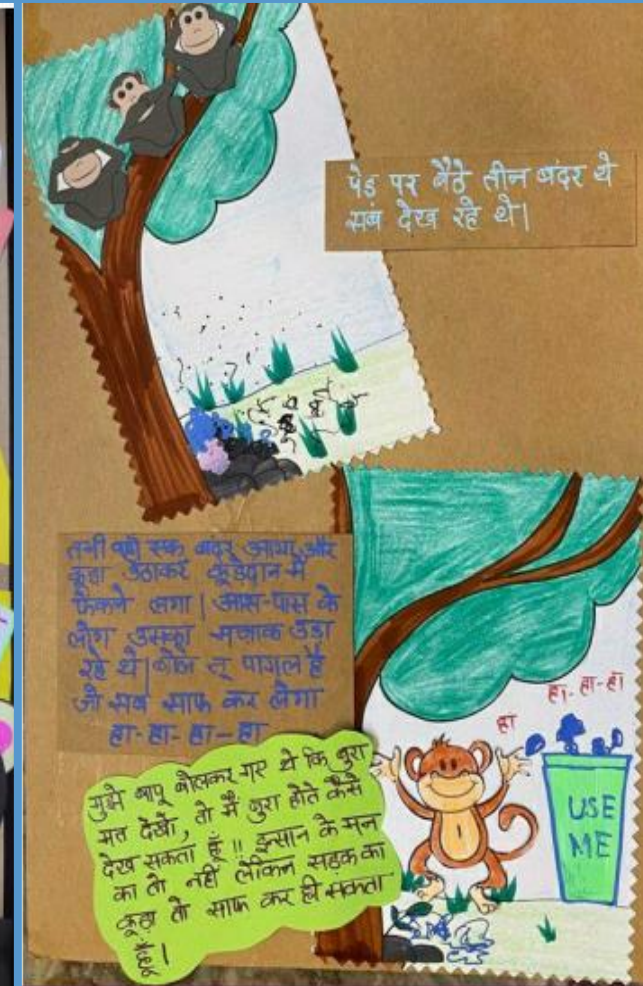 पेड़ पर बैठे तीन बंदर थे
सब देख रहे थे।
तभी वहाँ एक बंदर आया और
कूड़ा उठाकर कूड़ेदान में
फेंकने लगा। आस-पास के
लोग उसका मजाक उड़ा
रहे थे। बोले तू पागल है
जो सब साफ कर लेगा
हा-हा-हा-हा
हा
हा-हा-हा
USE
ME
मुझे बापू बोलकर गए थे कि बुरा
मत देखो, तो मैं बुरा होते कैसे
देख सकता हूँ!! इन्सान के मन
का तो नहीं लेकिन सड़क का
कूड़ा तो साफ कर ही सकता
हूँ।